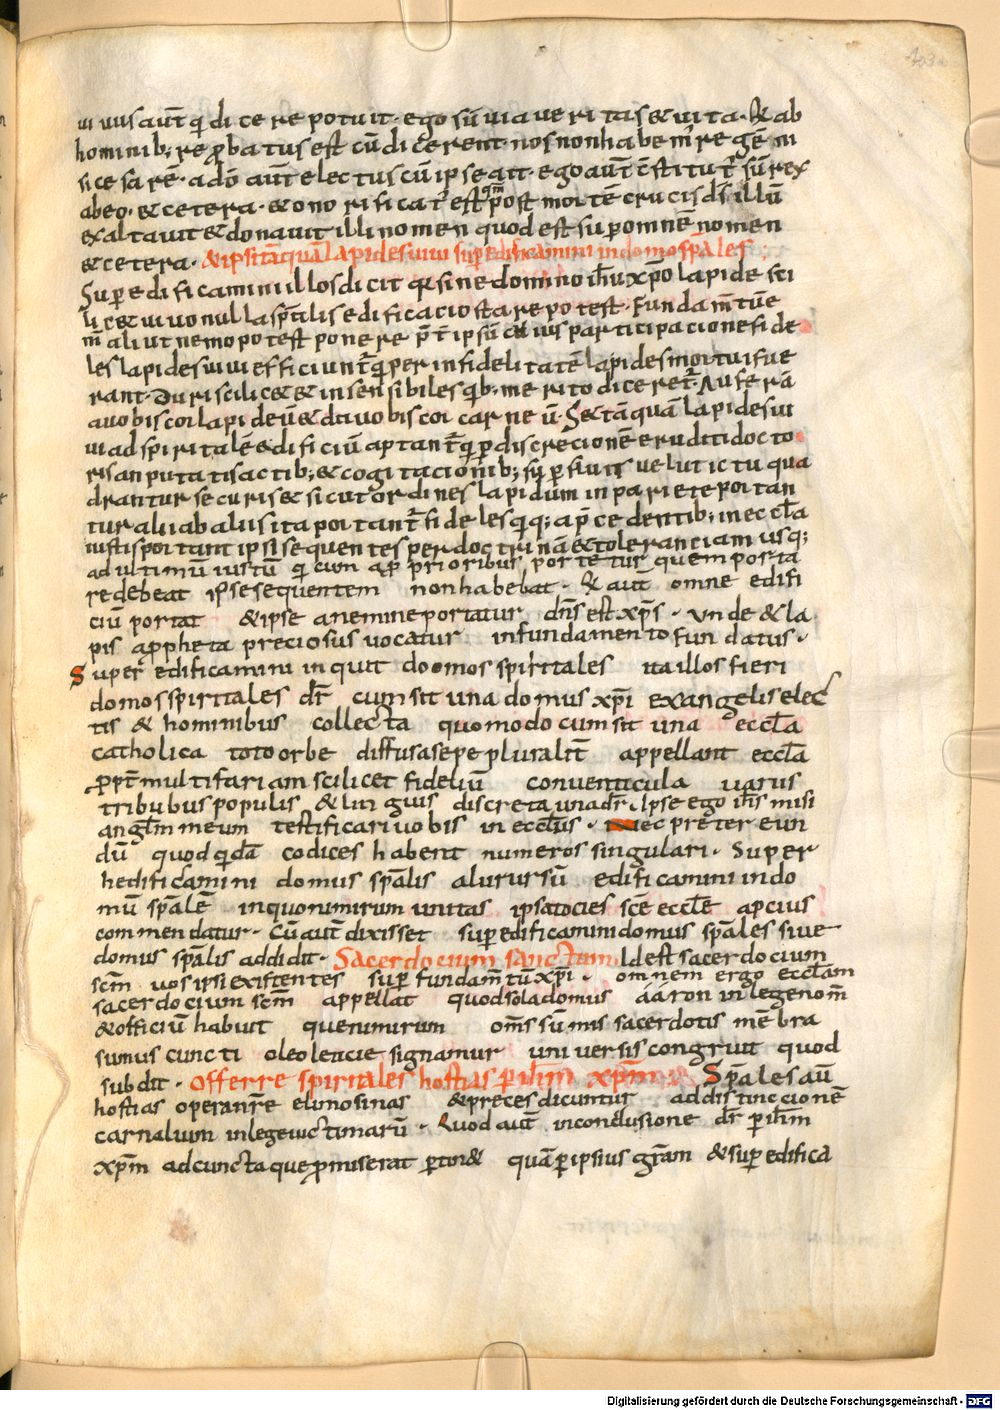 ui uus aut̄ q̇ dicere potuit. ego sū uia ueritas & uita. & ab
hominib; reprobatus est cū dicerent. nos non habem᷒ regē ni
si cesarē. a dō aut̄ electus cū ipse ait. ego aut̄ c̄stitut᷒ sū rex
ab eo. & cetera. & onorificat᷒ est qm̄ post mortē crucis ds̄ illū
exaltauit & donauit illi nomen quod est sup omnē nomen
& cetera. & ipsi tāquā lapides uiui sup edificamini in domos sp̄ales;
Sup edificamini illos dicit q̇ sine domino ih̄u xp̄o lapide sci
lic& uiuo nulla sp̄alis edificacio stare potest. Fundam̄tū e
m̄ aliut nemo potest ponere p̄t ipsū cuius participacione fide
les lapides uiui efficiunt᷒ q̇ per infidelitatē lapides mortui fue
rant. Duri scilic& & insensibiles qb; merito diceret᷒. Auferā
a uobis cor lapideū & dā uobis cor carneū. S& tāquā lapides ui
ui ad spiritalē edificiū aptant᷒ q̇ p discrecionē eruditi docto
ris anputatis actib; & cogitacionib; sup fluis uelut ictu qua
drantur securis & sicut ordines lapidum in pariete portan
tur alii ab aliis ita portant᷒ fideles q̇q; a p̄cedentib; in eccl̄a
iustis portant ipsi sequentes per doctrinā & toleranciam usq;
ad ultimū iustū q̇ cum a p̄prioribus portetur quem porta
re debeat ipse sequentem non habebat. & aut̄ omne edifi
ciū portat & ipse a nemine portatur dn̄s est xp̄s. Unde & la
pis a ppheta preciosus uocatur in fundamento fundatus.
Super edificamini inquit domos spiritales ita illos fieri
domos spiritales dr̄ cum sit una domus xp̄i ex angelis elec
tis & hominibus collecta quomodo cum sit una eccl̄a
catholica toto orbe diffusa sepe pluralit̄ appellant eccl̄a
ppt̄ multifariam scilicet fideliū conuenticula uarus
tribubus populis & lingius discreta una dr̄. Ipse ego ih̄s misi
angl̄m meum testificari uobis in eccl̄us. nec preter eun
dū quod q̇dā codices habent numero singulari. Super
hedificamini domus sp̄alis alurursū edificamini in do
mū sp̄alē in quo nimirum unitas ipsa tocies scē eccl̄e apcius
commendatur. Cū aut̄ dixisset sup edificamini domus sp̄ales siue
domus sp̄alis addidit. Sacerdocium sanctum Id est sacerdocium
scm̄ uos ipsi existentes sup fundam̄tū xp̄i. omnem ergo eccl̄am
sacerdocium scm̄ appellat quod sola domus ááron in lege nom̄
& officiū habuit que nimirum om̄s sum̄i sacerdotis mēbra
sumus cuncti oleo leticie signamur uniuersis congruit quod
subdit. Offerre spiritales hostias p ih̄m xp̄m Sp̄ales aū
hostias operanr̄e elimosinas & preces dicuntur ad distinccionē
carnalium in lege uictimarū. Quod aut̄ in conclusione dr̄ p ih̄m
xp̄m ad cuncta que pmiserat ptin& quā p ipsius gr̄am & sup edifica